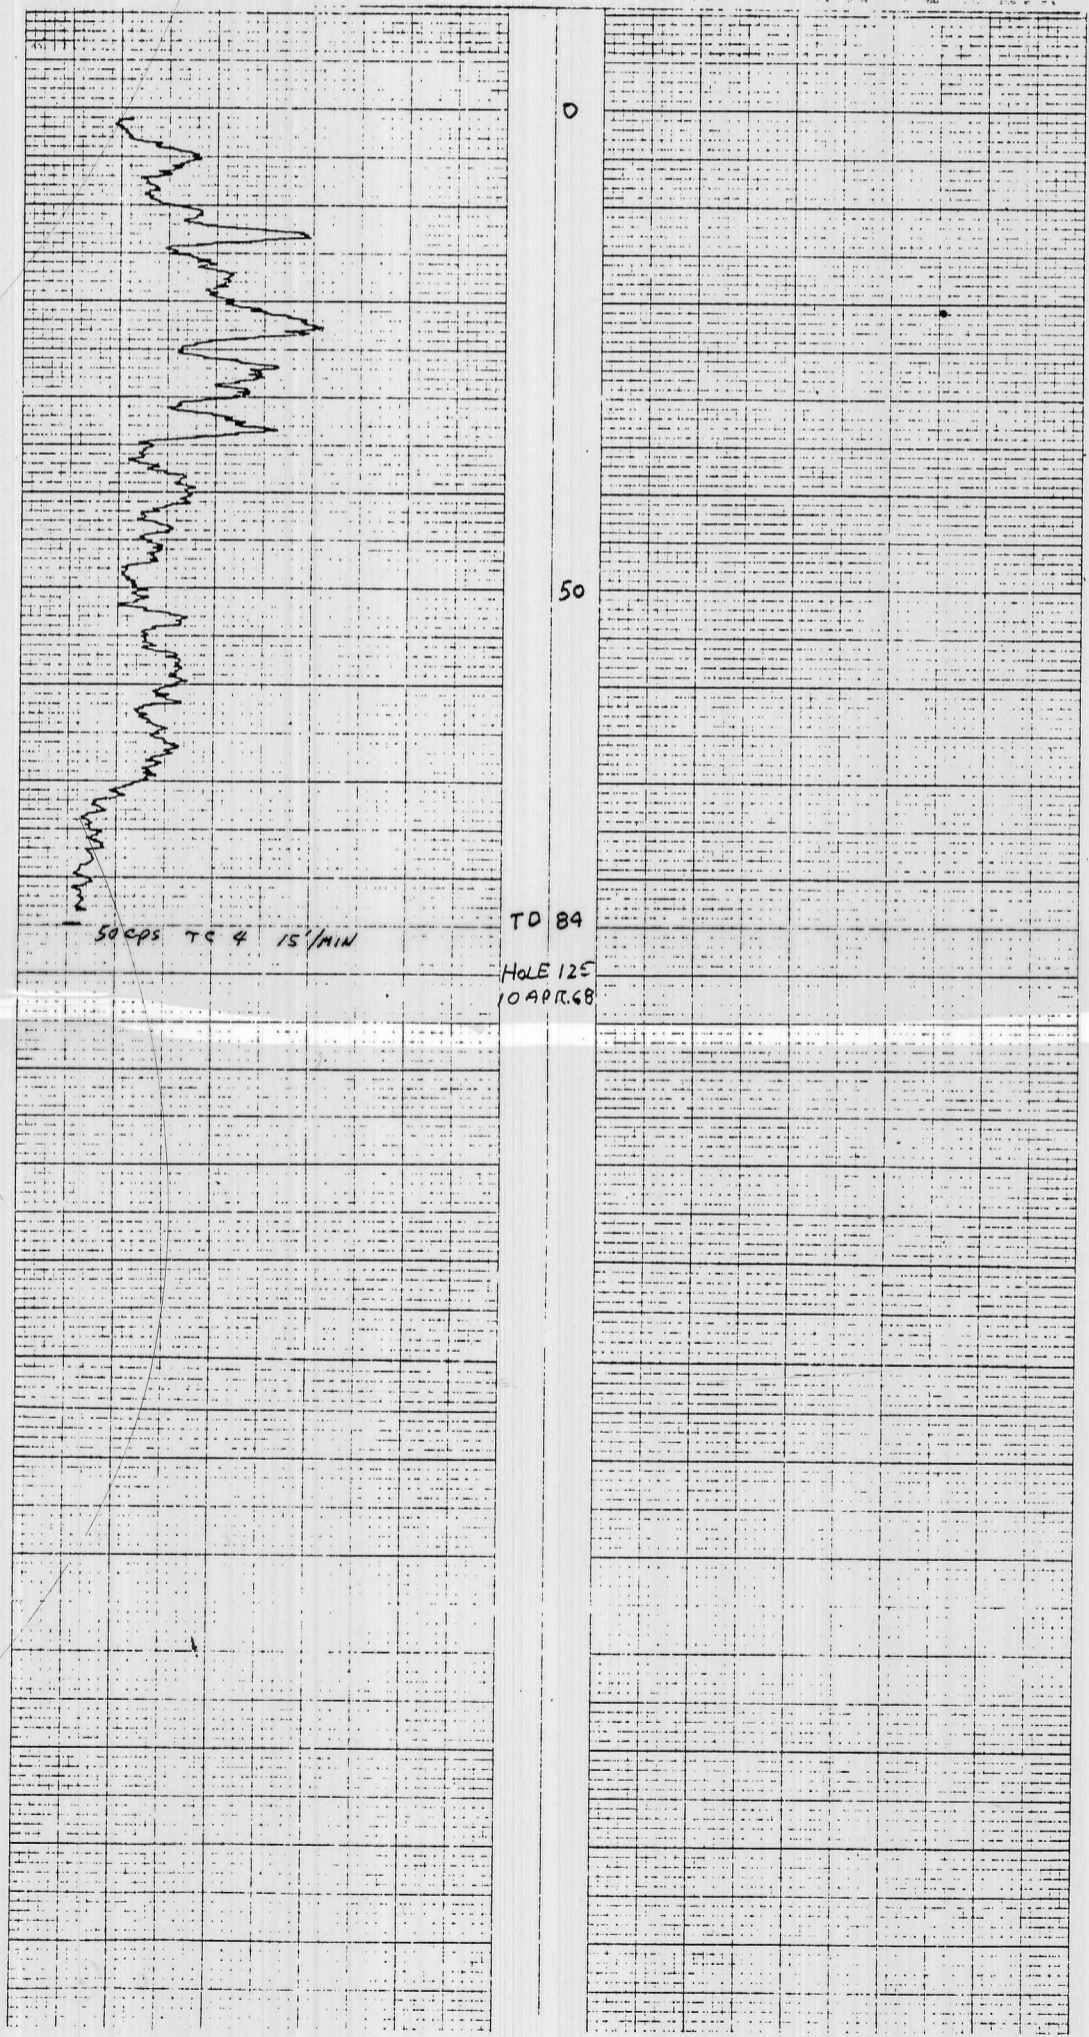 0
50
50 CPS TC 4 15'/MIN
TD 84
HOLE 125
10 APR.68